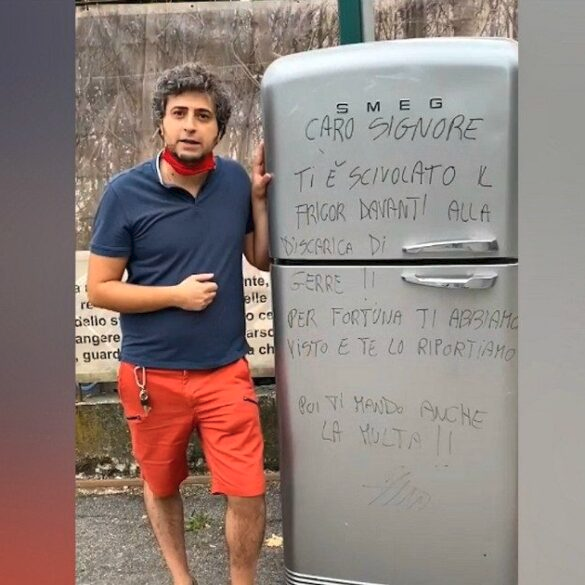 SMEG
CARO SIGNORE
TI È SCIVOLATO IL
FRIGOR DAVANTI ALLA
DISCARICA DI
GERRE !!
PER FORTUNA TI ABBIAMO
VISTO E TE LO RIPORTIAMO
POI TI MANDO ANCHE
LA MULTA !!
nte,
elle
dello s
ce
angere
arso
, guard
cha